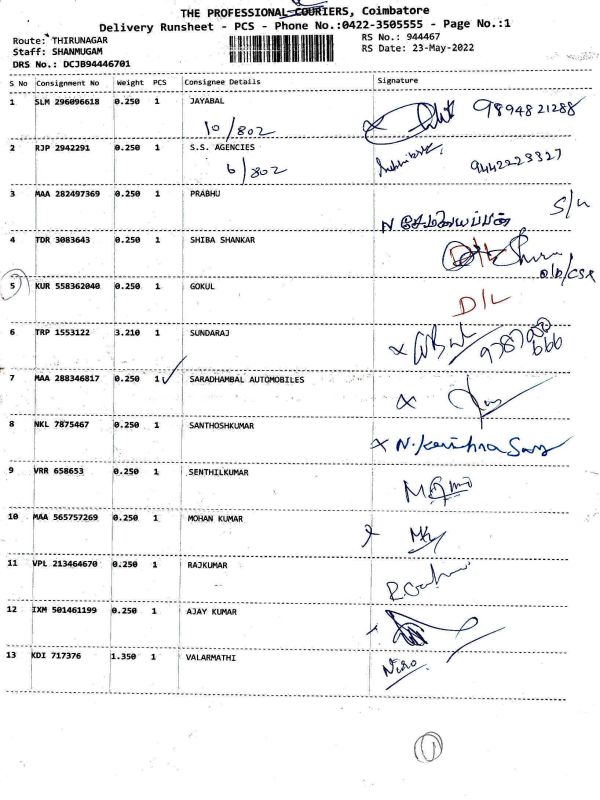 THE PROFESSIONAL COURIERS, Coimbatore
Delivery Runsheet - PCS - Phone No.:0422-3505555 - Page No.:1
Route: THIRUNAGAR RS No.: 944467
Staff: SHANMUGAM RS Date: 23-May-2022
DRS No.: DCJB94446701
S No Consignment No Weight PCS Consignee Details Signature
1 SLM 296096618 0.250 1 JAYABAL 9894821288
10/802
2 RJP 2942291 0.250 1 S.S. AGENCIES 9442223327
6/802
3 MAA 282497369 0.250 1 PRABHU S/L
4 TDR 3083643 0.250 1 SHIBA SHANKAR D/L
5 KUR 558362040 0.250 1 GOKUL D/L
6 TRP 1553122 3.210 1 SUNDARAJ
7 MAA 288346817 0.250 1 SARADHAMBAL AUTOMOBILES
8 NKL 7875467 0.250 1 SANTHOSHKUMAR
9 VRR 658653 0.250 1 SENTHILKUMAR
10 MAA 565757269 0.250 1 MOHAN KUMAR
11 VPL 213464670 0.250 1 RAJKUMAR
12 IXM 501461199 0.250 1 AJAY KUMAR
13 KDI 717376 1.350 1 VALARMATHI
1